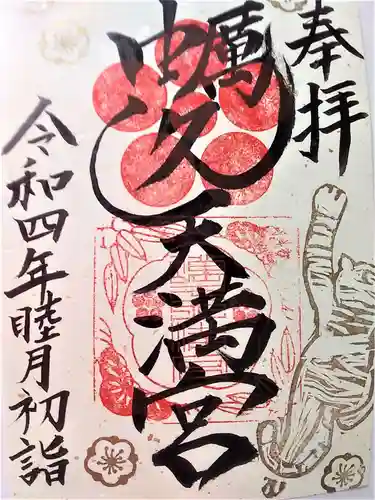 奉拝
蠣久天満宮
令和四年睦月初詣